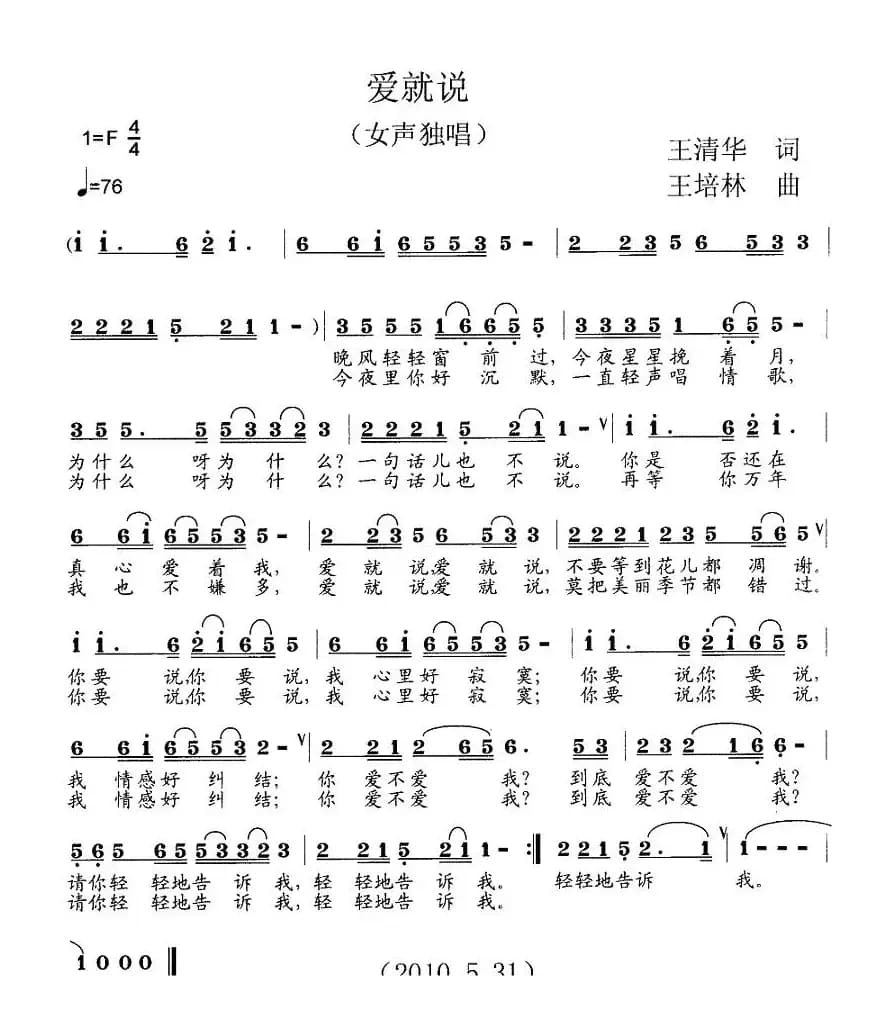 爱就说
（女声独唱）
1=F 4/4
♩=76
王清华 词
王培林 曲
(i i. 6 2 i. | 6 6 i 6 5 5 3 5 - | 2 2 3 5 6 5 3 3 |
2 2 2 1 5 2 1 1 - ) | 3 5 5 5 1 6 6 5 5 | 3 3 3 5 1 6 5 5 - |
晚风轻轻窗 前 过，今夜星星挽 着 月，
今夜里你好 沉 默，一直轻声唱 情 歌，
3 5 5. 5 5 3 3 2 3 | 2 2 2 1 5 2 1 1 - ∨ | i i. 6 2 i. |
为什么 呀为 什 么？一句话儿也 不 说。你是 否还在
为什么 呀为 什 么？一句话儿也 不 说。再等 你万年
6 6 i 6 5 5 3 5 - | 2 2 3 5 6 5 3 3 | 2 2 2 1 2 3 5 5 6 5 ∨ |
真 心 爱 着 我， 爱 就 说，爱 就 说，不要等到花儿都 凋 谢。
我 也 不 嫌 多， 爱 就 说，爱 就 说，莫把美丽季节都 错 过。
i i. 6 2 i 6 5 5 | 6 6 i 6 5 5 3 5 - | i i. 6 2 i 6 5 5 |
你要 说，你 要 说，我 心里好 寂 寞；你要 说，你 要 说，
你要 说，你 要 说，我 心里好 寂 寞；你要 说，你 要 说，
6 6 i 6 5 5 3 2 - ∨ | 2 2 1 2 6 5 6. 5 3 | 2 3 2 1 6 6 - |
我 情感好 纠 结；你 爱不爱 我？到底 爱不爱 我？
我 情感好 纠 结；你 爱不爱 我？到底 爱不爱 我？
5 6 5 6 5 5 3 3 2 3 | 2 2 1 5 2 1 1 - :‖ 2 2 1 5 2. 1 ∨ | 1 - - - |
请你轻 轻地告 诉 我，轻 轻地告 诉 我。 轻轻地告诉 我。
请你轻 轻地告 诉 我，轻 轻地告 诉 我。
1 0 0 0 ‖
(2010.5.31)